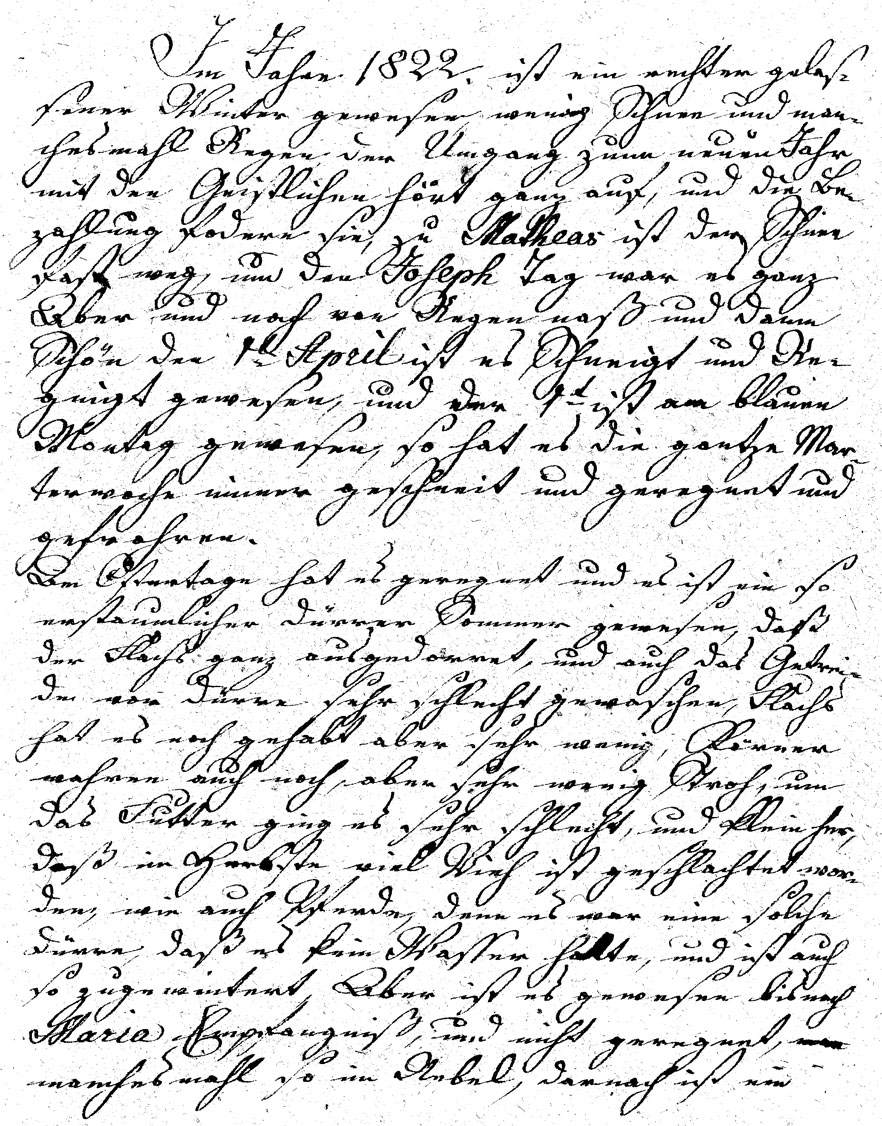 Im Jahre 1822. ist ein rechter gelas-
sener Winter gewesen wenig Schnee und man-
chesmahl Regen der Umgang zum neuen Jahr
mit den Geistlichen hört ganz auf, und die Be-
zahlung fodern sie, zu Matheas ist der Schnee
fast weg, um den Joseph Tag war es ganz
Eber und noch von Regen naß und dann
Schön den 1t April ist es Schneigt und Re-
gnigt gewesen, und der 1t ist am blauen
Montag gewesen, so hat es die gantze Mar-
terwoche immer geschneit und geregnet und
gefrohren.
Die Ostertage hat es geregnet und es ist ein so
erstaunlicher dürrer Sommer gewesen, daß
der Flachs ganz ausgedorret, und auch das Getrei-
de vor dürre sehr schlecht gewaschen, Flachs
hat es noch gehabt aber sehr wenig, Körner
wahren auch noch, aber sehr wenig Stroh, um
das Futter ging es sehr schlecht, und klein her,
daß im Herbste viel Vieh ist geschlachtet wor-
den, wie auch Pferde, denn es war eine solche
dürre, daß es kein Wasser hatte, und ist auch
so zugewintert, Eber ist es gewesen bis nach
Maria Empfängniß, und nicht geregnet,
manchesmahl so im Nebel, darnach ist ein